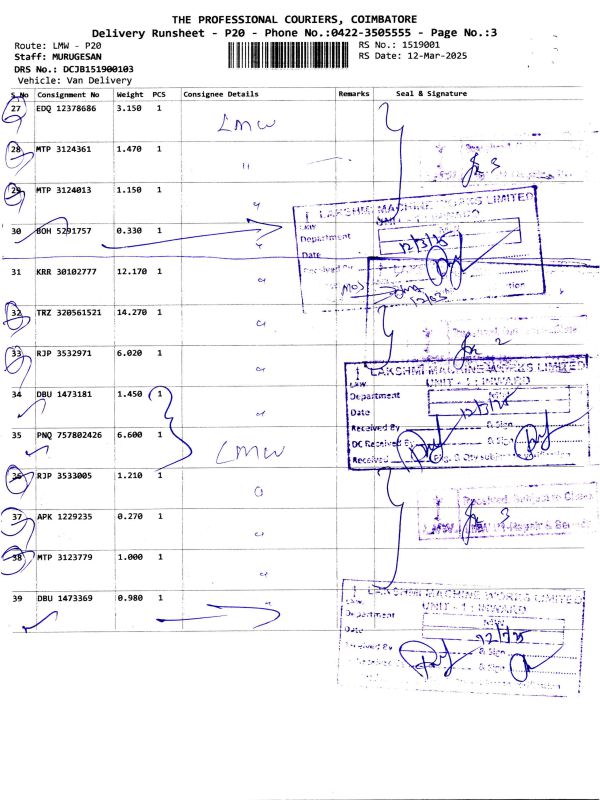 THE PROFESSIONAL COURIERS, COIMBATORE
Delivery Runsheet - P20 - Phone No.:0422-3505555 - Page No.:3
Route: LMW - P20
RS No.: 1519001
Staff: MURUGESAN
RS Date: 12-Mar-2025
DRS No.: DCJB151900103
Vehicle: Van Delivery
S.No Consignment No Weight PCS Consignee Details Remarks Seal & Signature
27 EDQ 12378686 3.150 1
LMW
28 MTP 3124361 1.470 1
29 MTP 3124013 1.150 1
LAKSHMI MACHINE WORKS LIMITED
UNIT - 1 : INWARD
30 BOH 5291757 0.330 1
Department
12/3/25
Date
31 KRR 30102777 12.170 1
32 TRZ 320561521 14.270 1
33 RJP 3532971 6.020 1
2
LAKSHMI MACHINE WORKS LIMITED
UNIT - 1 : INWARD
34 DBU 1473181 1.450 1
Department
Date
12/3/25
Received By & Sign
35 PNQ 757802426 6.600 1
DC Received By & Sign
LMW
Received
36 RJP 3533005 1.210 1
37 APK 1229235 0.270 1
3
38 MTP 3123779 1.000 1
LAKSHMI MACHINE WORKS LIMITED
39 DBU 1473369 0.980 1
UNIT - 1 : INWARD
Department
Date
Received By & Sign